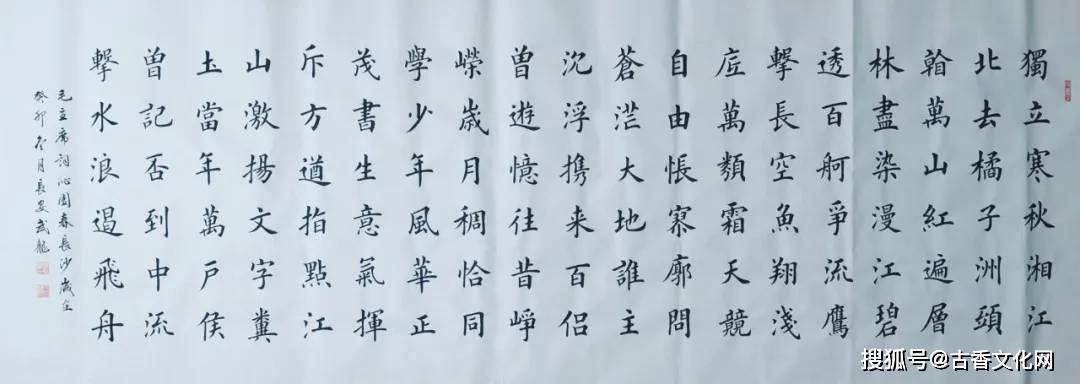 獨立寒秋湘江
北去橘子洲頭
看萬山紅遍層
林盡染漫江碧
透百舸爭流鷹
擊長空魚翔淺
底萬類霜天競
自由悵寥廓問
蒼茫大地誰主
沉浮携来百侣
曾遊憶往昔崢
嶸歲月稠恰同
學少年風華正
茂書生意氣揮
斥方遒指點江
山激揚文字糞
土當年萬戶侯
曾記否到中流
擊水浪遏飛舟
毛主席詞沁園春長沙歲在
癸卯冬月長安武龍
搜狐号@古香文化网